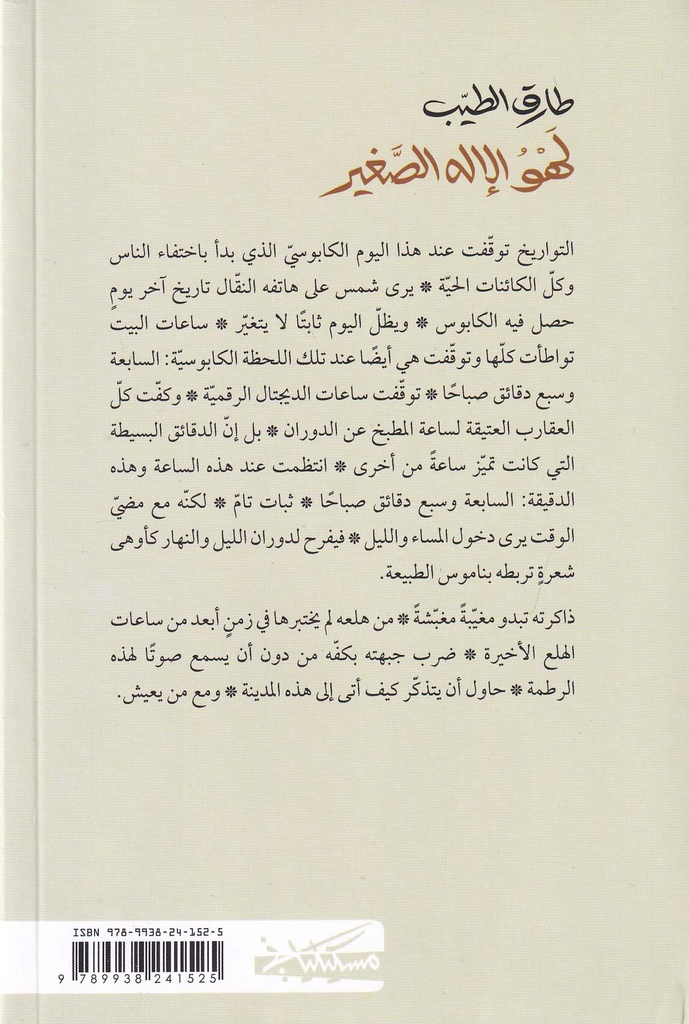 طارق الطيّب
لَهْوُ الإله الصَّغير
التواريخ توقّفت عند هذا اليوم الكابوسيّ الذي بدأ باختفاء الناس
وكلّ الكائنات الحيّة * يرى شمس على هاتفه النقّال تاريخ آخر يومٍ
حصل فيه الكابوس * ويظلّ اليوم ثابتًا لا يتغيّر * ساعات البيت
تواطأت كلّها وتوقّفت هي أيضًا عند تلك اللحظة الكابوسيّة: السابعة
وسبع دقائق صباحًا * توقّفت ساعات الديجتال الرقميّة * وكفّت كلّ
العقارب العتيقة لساعة المطبخ عن الدوران * بل إنّ الدقائق البسيطة
التي كانت تميّز ساعةً من أخرى * انتظمت عند هذه الساعة وهذه
الدقيقة: السابعة وسبع دقائق صباحًا * ثبات تامّ * لكنّه مع مضيّ
الوقت يرى دخول المساء والليل * فيفرح لدوران الليل والنهار كأوهى
شعرةٍ تربطه بناموس الطبيعة.
ذاكرته تبدو مغيّبةً مغبّشةً * من هلعه لم يختبرها في زمنٍ أبعد من ساعات
الهلع الأخيرة * ضرب جبهته بكفّه من دون أن يسمع صوتًا لهذه
الرطمة * حاول أن يتذكّر كيف أتى إلى هذه المدينة * ومع من يعيش.
ISBN 978-9938-24-152-5
9 789938 241525
مسكيلياني